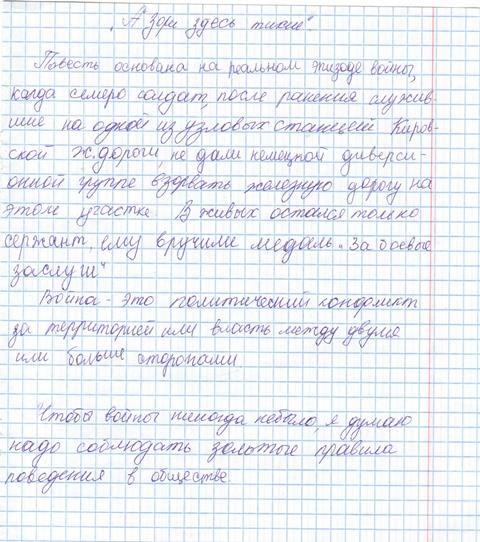 „А зори здесь тихие".
Повесть основана на реальном эпизоде войны,
когда семеро солдат, после ранения служив-
шие на одной из узловых станций Киров-
ской ж.дороги, не дали немецкой диверси-
онной группе взорвать железную дорогу на
этом участке. В живых остался только
сержант, ему вручили медаль „За боевые
заслуги"
Война - это политический конфликт
за территорией или власть между двумя
или больше сторонами.
Чтобы войны никогда небыло, я думаю
надо соблюдать золотые правила
поведения в обществе.